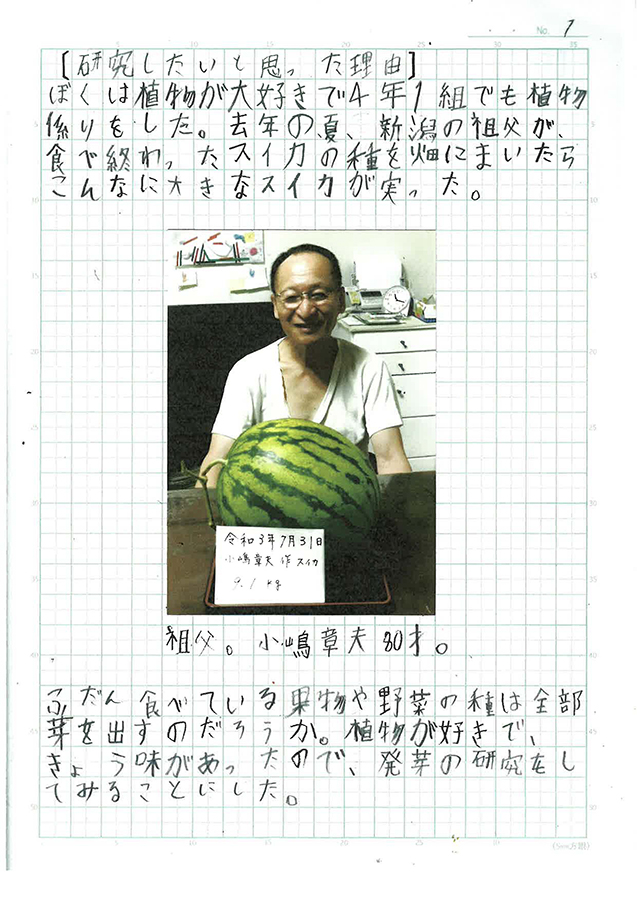 No. 1
[研究したいと思った理由]
ぼくは植物が大好きで4年1組でも植物
係りをした。去年の夏、新潟の祖父が、
食べ終わったスイカの種を畑にまいたら
こんなに大きなスイカが実った。
令和3年7月31日
小嶋章夫 作 スイカ
9.1 kg
祖父。小嶋章夫80才。
ふだん食べている果物や野菜の種は全部
芽を出すのだろうか。植物が好きで、
きょう味があったので、発芽の研究をし
てみることにした。
(5mm方眼)